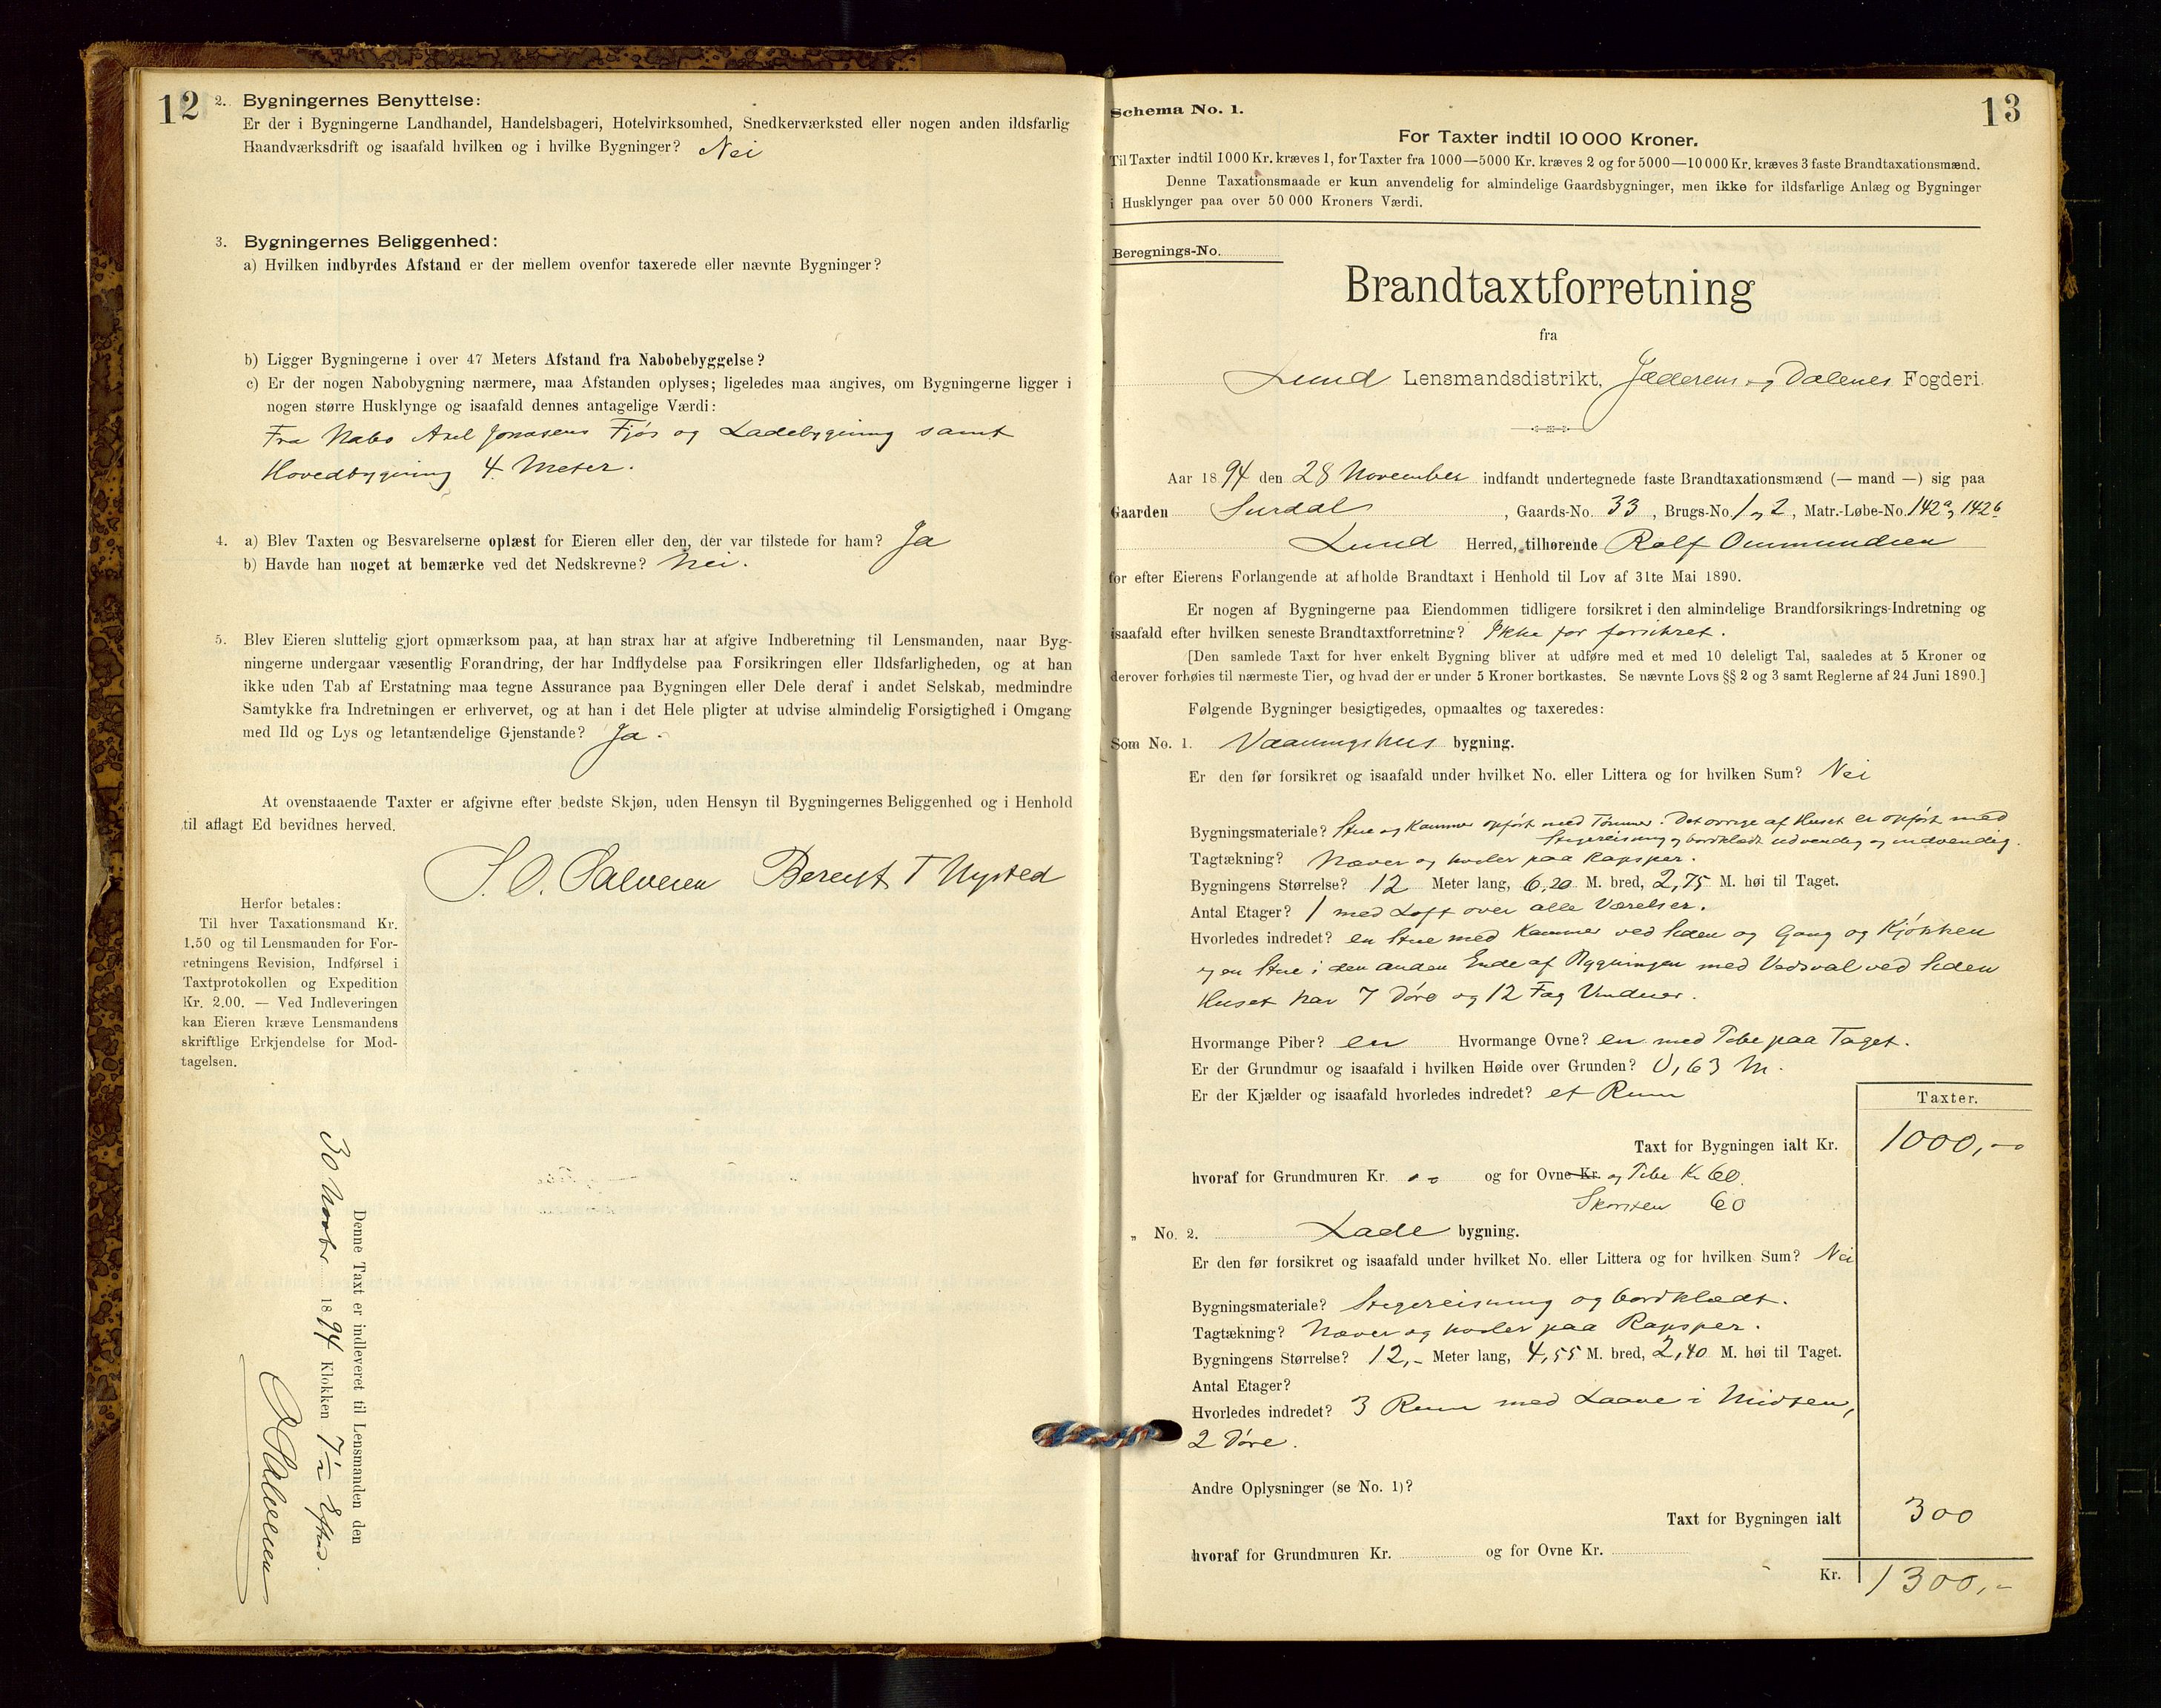 12
2. Bygningernes Benyttelse:
Er der i Bygningerne Landhandel, Handelsbageri, Hotelvirksomhed, Snedkerværksted eller nogen anden ildsfarlig
Haandværksdrift og isaafald hvilken og i hvilke Bygninger? Nei
3. Bygningernes Beliggenhed:
a) Hvilken indbyrdes Afstand er der mellem ovenfor taxerede eller nævnte Bygninger?
b) Ligger Bygningerne i over 47 Meters Afstand fra Nabobebyggelse?
c) Er der nogen Nabobygning nærmere, maa Afstanden oplyses; ligeledes maa angives, om Bygningerne ligger i
nogen større Husklynge og isaafald dennes antagelige Værdi:
Fra Nabo Axel Jonasens Fjøs og Ladebygning samt
Hovedbygning 4 Meter.
4. a) Blev Taxten og Besvarelserne oplæst for Eieren eller den, der var tilstede for ham? Ja
b) Havde han noget at bemærke ved det Nedskrevne? Nei.
5. Blev Eieren sluttelig gjort opmærksom paa, at han strax har at afgive Indberetning til Lensmanden, naar Byg-
ningerne undergaar væsentlig Forandring, der har Indflydelse paa Forsikringen eller Ildsfarligheden, og at han
ikke uden Tab af Erstatning maa tegne Assurance paa Bygningen eller Dele deraf i andet Selskab, medmindre
Samtykke fra Indretningen er erhvervet, og at han i det Hele pligter at udvise almindelig Forsigtighed i Omgang
med Ild og Lys og letantændelige Gjenstande? Ja.
At ovenstaaende Taxter er afgivne efter bedste Skjøn, uden Hensyn til Bygningernes Beliggenhed og i Henhold
til aflagt Ed bevidnes herved.
S. O. Salvesen Berent T Nysted
Herfor betales:
Til hver Taxationsmand Kr.
1.50 og til Lensmanden for For-
retningens Revision, Indførsel i
Taxtprotokollen og Expedition
Kr. 2.00. — Ved Indleveringen
kan Eieren kræve Lensmandens
skriftlige Erkjendelse for Mod-
tagelsen.
Denne Taxt er indleveret til Lensmanden den
30 Novbr 1894 Klokken 7 Eftmd.
Salvesen
13
Schema No. 1.
For Taxter indtil 10 000 Kroner.
Til Taxter indtil 1000 Kr. kræves 1, for Taxter fra 1000—5000 Kr. kræves 2 og for 5000—10 000 Kr. kræves 3 faste Brandtaxationsmænd.
Denne Taxationsmaade er kun anvendelig for almindelige Gaardsbygninger, men ikke for ildsfarlige Anlæg og Bygninger
i Husklynger paa over 50 000 Kroners Værdi.
Beregnings-No.
Brandtaxtforretning
fra
Lund Lensmandsdistrikt, Jæderens og Dalenes Fogderi.
Aar 1894 den 28 November indfandt undertegnede faste Brandtaxationsmænd (— mand —) sig paa
Gaarden Surdal, Gaards-No. 33, Brugs-No. 1 og 2, Matr.-Løbe-No. 142a og 142b
Lund Herred, tilhørende Rolf Ommundsen
for efter Eierens Forlangende at afholde Brandtaxt i Henhold til Lov af 31te Mai 1890.
Er nogen af Bygningerne paa Eiendommen tidligere forsikret i den almindelige Brandforsikrings-Indretning og
isaafald efter hvilken seneste Brandtaxtforretning? Ikke før forsikret.
[Den samlede Taxt for hver enkelt Bygning bliver at udføre med et med 10 deleligt Tal, saaledes at 5 Kroner og
derover forhøies til nærmeste Tier, og hvad der er under 5 Kroner bortkastes. Se nævnte Lovs §§ 2 og 3 samt Reglerne af 24 Juni 1890.]
Følgende Bygninger besigtigedes, opmaaltes og taxeredes:
Som No. 1. Vaaningshus bygning.
Er den før forsikret og isaafald under hvilket No. eller Littera og for hvilken Sum? Nei
Bygningsmateriale? Stue og Kammer opført med Tømmer. Det øvrige af Huset er opført med
Stegereisning og bordklædt udvendig og indvendig.
Tagtækning? Næver og heller paa Rapsper.
Bygningens Størrelse? 12 Meter lang, 6,20 M. bred, 2,75 M. høi til Taget.
Antal Etager? 1 med Loft over alle Værelser.
Hvorledes indredet? en Stue med Kammer ved Siden og Gang og Kjøkken
og en Stue i den anden Ende af Bygningen med Vedsval ved Siden
Huset har 7 Døre og 12 Fag Vinduer.
Hvormange Piber? en Hvormange Ovne? en med Pibe paa Taget.
Er der Grundmur og isaafald i hvilken Høide over Grunden? 0,63 M.
Er der Kjælder og isaafald hvorledes indredet? et Rum
Taxter.
Taxt for Bygningen ialt Kr. 1000,-
hvoraf for Grundmuren Kr. og for Ovne Kr. og Pibe Kr 60.
Skorsten 60
„ No. 2. Lade bygning.
Er den før forsikret og isaafald under hvilket No. eller Littera og for hvilken Sum? Nei
Bygningsmateriale? Stegereisning og bordklædt.
Tagtækning? Næver og heller paa Rapsper.
Bygningens Størrelse? 12,- Meter lang, 4,55 M. bred, 2,40 M. høi til Taget.
Antal Etager?
Hvorledes indredet? 3 Rum med Laave i Midten,
2 Døre.
Andre Oplysninger (se No. 1)?
Taxt for Bygningen ialt 300
hvoraf for Grundmuren Kr. og for Ovne Kr.
Kr. 1300,-